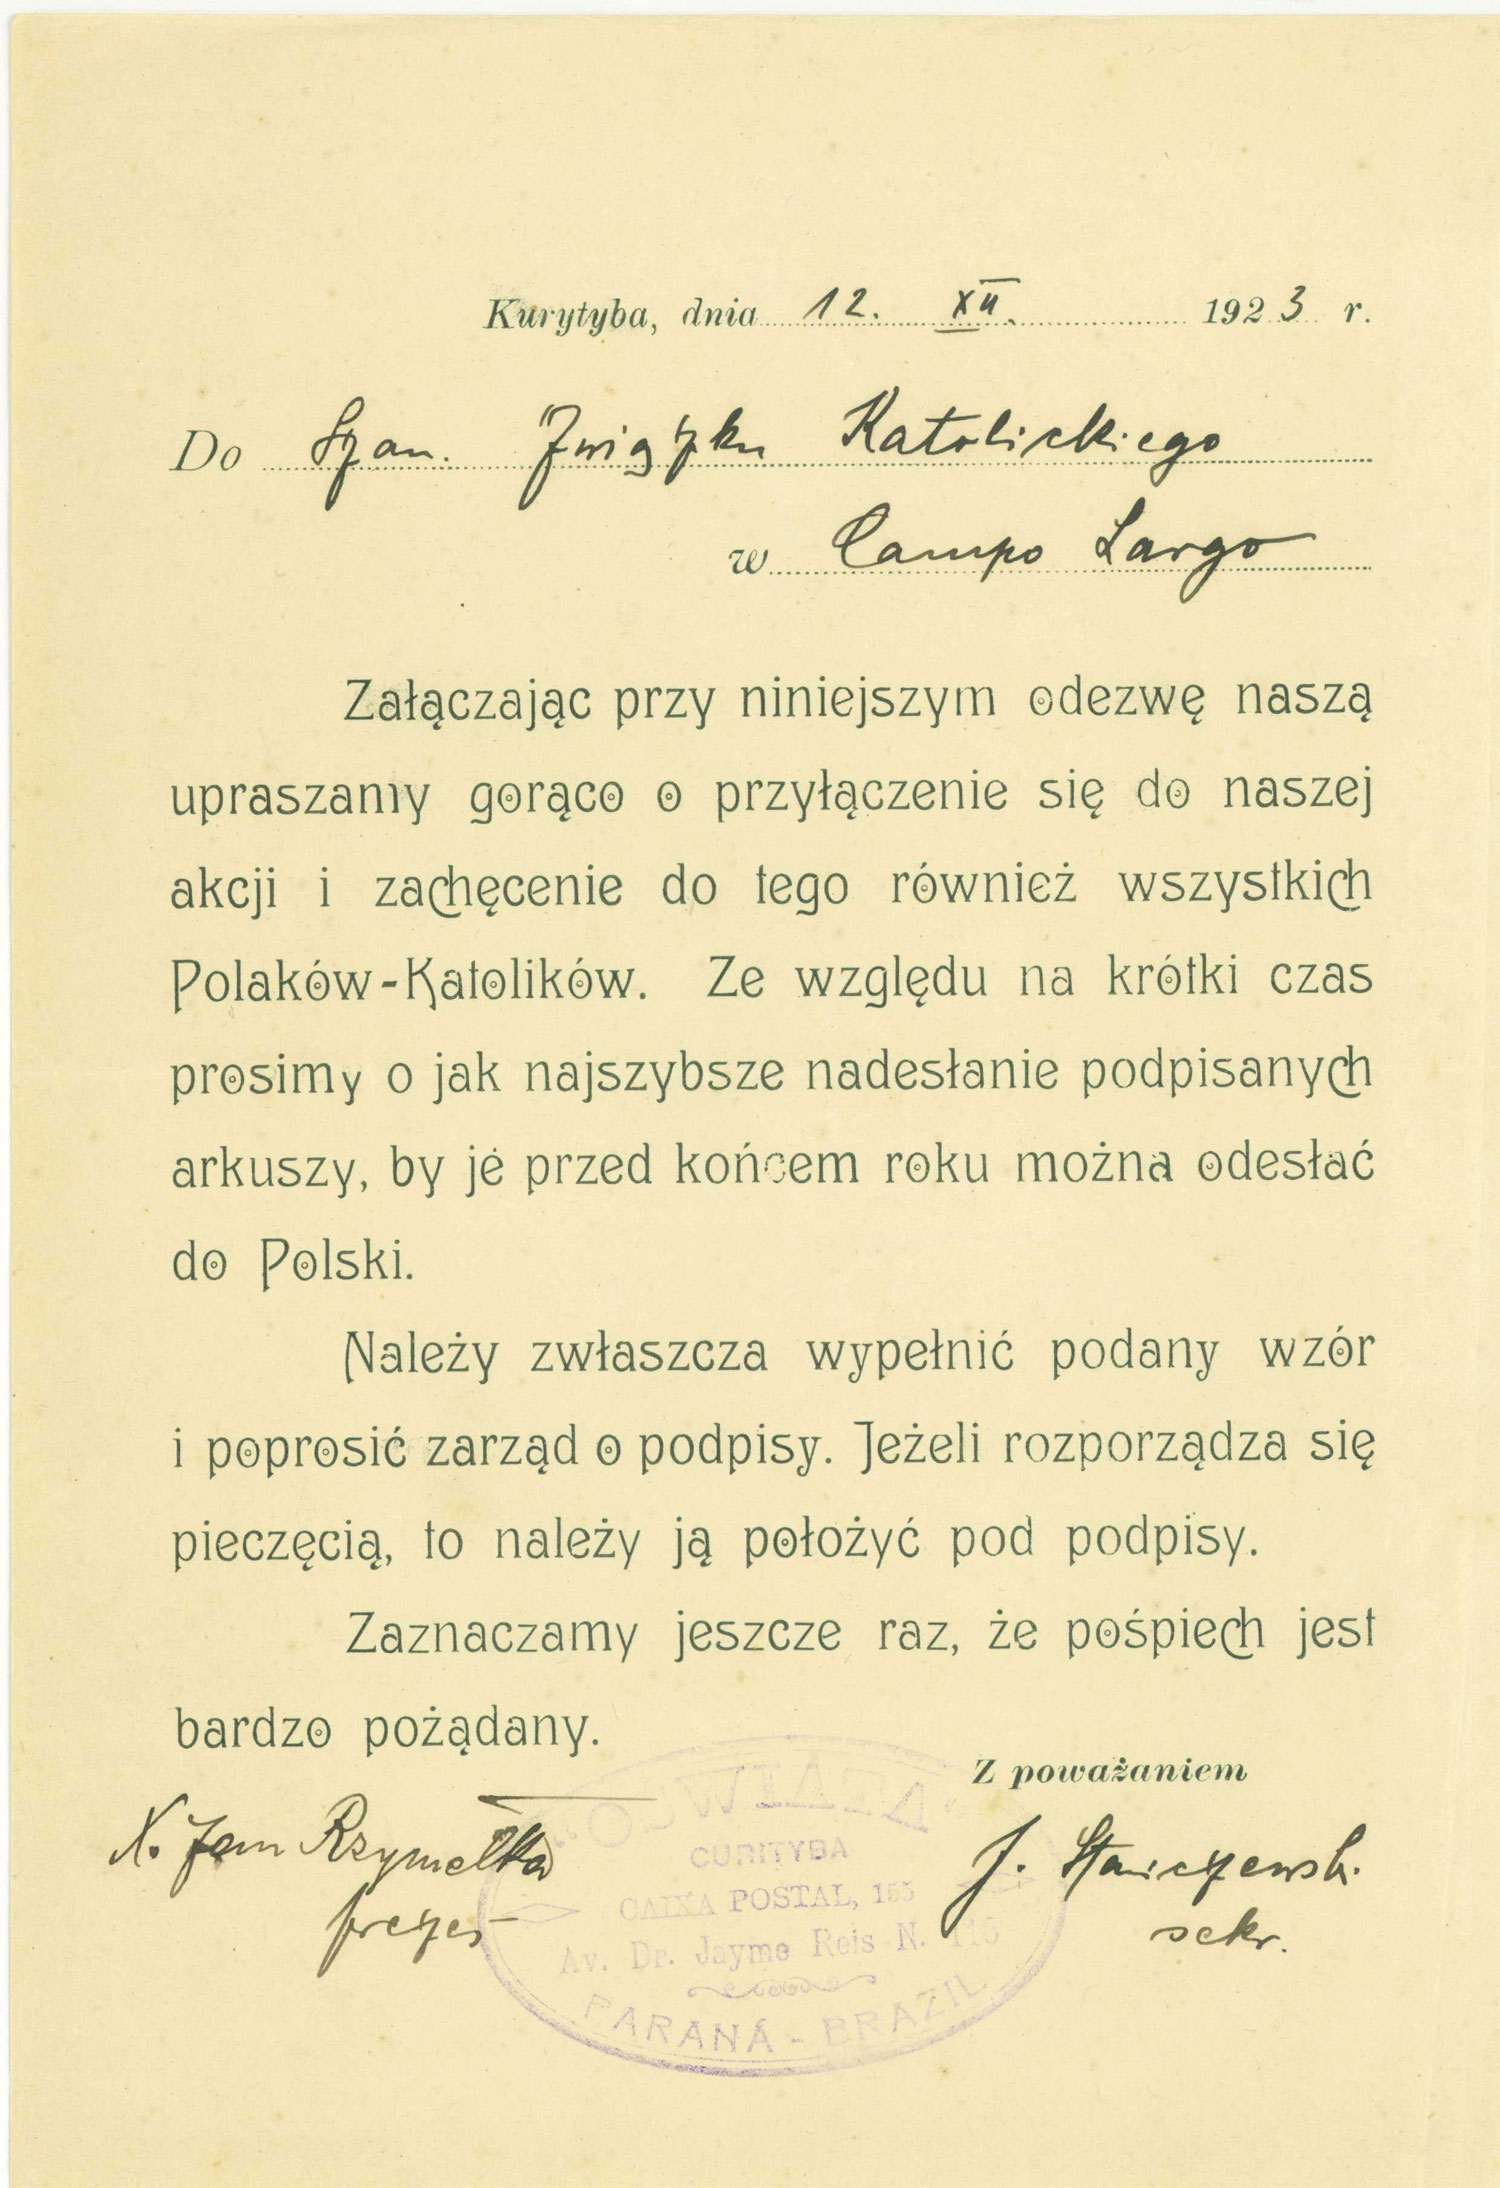 Kurytyba, dnia 12. XII. 1923 r.
Do Szan. Związku Katolickiego
w Campo Largo
Załączając przy niniejszym odezwę naszą
upraszamy gorąco o przyłączenie się do naszej
akcji i zachęcenie do tego również wszystkich
Polaków-Katolików. Ze względu na krótki czas
prosimy o jak najszybsze nadesłanie podpisanych
arkuszy, by je przed końcem roku można odesłać
do Polski.
Należy zwłaszcza wypełnić podany wzór
i poprosić zarząd o podpisy. Jeżeli rozporządza się
pieczęcią, to należy ją położyć pod podpisy.
Zaznaczamy jeszcze raz, że pośpiech jest
bardzo pożądany.
Z poważaniem
X. Jan Rzymełka
prezes
J. Stańczewski
sekr.
"OŚWIATA"
CURITYBA
CAIXA POSTAL, 155
Av. Dr. Jayme Reis N. 115
PARANÁ - BRAZIL